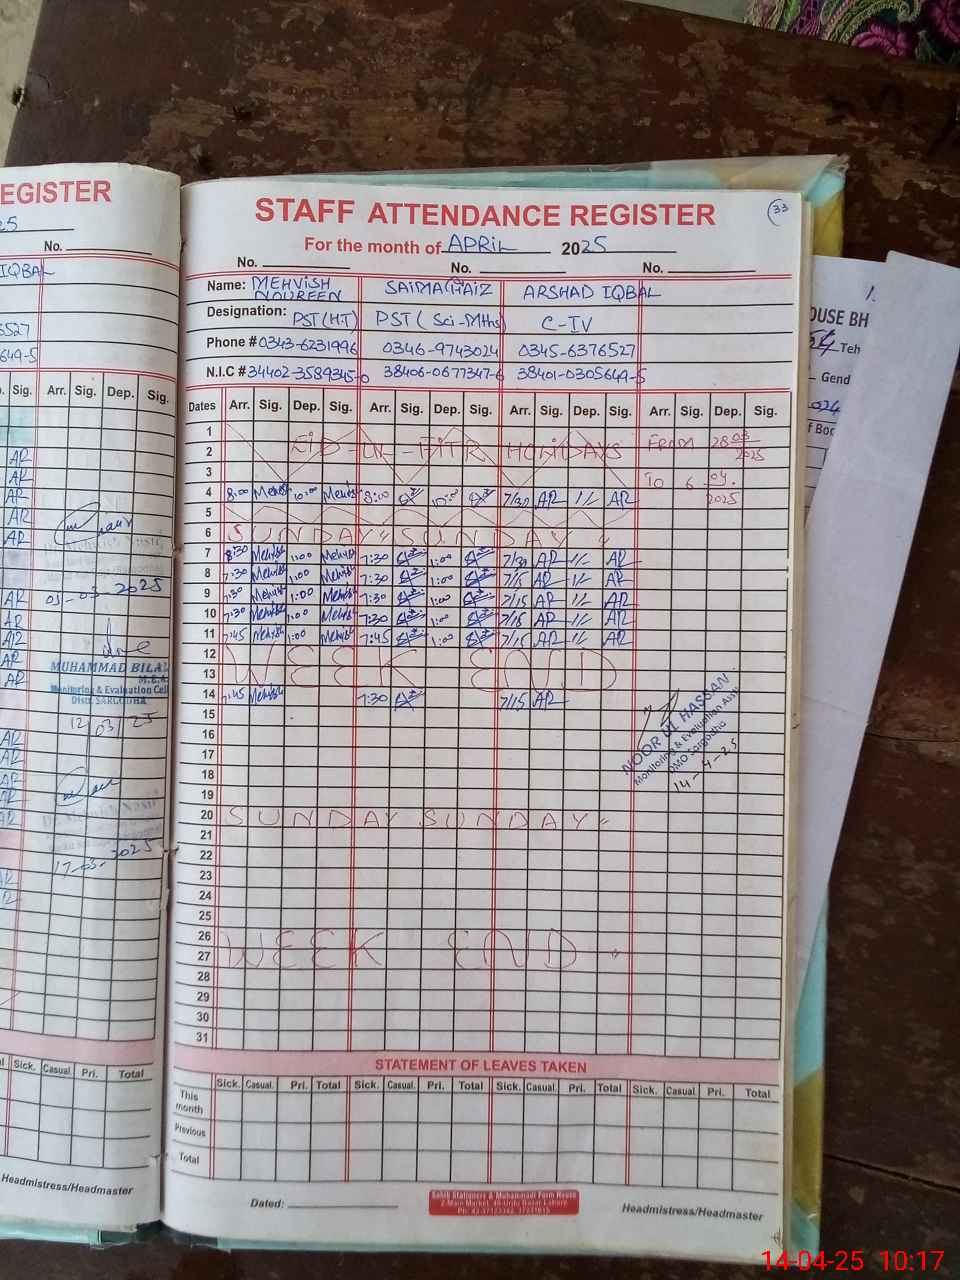 EGISTER
25
No.
IQBAL
6527
649-5
Sig. Arr. Sig. Dep. Sig.
AR
AR
AR
AR
AR
03-03-2025
AR
AR
AR
AR
AR
MUHAMMAD BILAL
M.E.A
Monitoring & Evaluation Cell
Distt. SARGODHA
12/03/25
AR
AR
AR
AR
AR
17-03-2025
AR
Sick. Casual. Pri. Total
Headmistress/Headmaster
33
STAFF ATTENDANCE REGISTER
For the month of APRIL 2025
No. No. No.
Name: MEHVISH NOUREEN SAIMA FAIZ ARSHAD IQBAL
Designation: PST (H.T) PST (Sci-Mths) C-IV
Phone # 0343-6231996 0346-9743024 0345-6376527
N.I.C # 34402-3589345-0 38406-0677347-6 38401-0305649-5
Dates Arr. Sig. Dep. Sig. Arr. Sig. Dep. Sig. Arr. Sig. Dep. Sig. Arr. Sig. Dep. Sig.
1
2 EID-UL-FITR HOLIDAYS FROM 28 03 2025
3 To 6 - 04. 2025
4 8:00 Mehvish 10:00 Mehvish 8:00 10:00 7/30 AR 1/- AR
5
6 SUNDAY " SUNDAY "
7 8:30 Mehvish 1:00 Mehvish 7:30 1:00 7/30 AR 1/- AR
8 7:30 Mehvish 1:00 Mehvish 7:30 1:00 7/15 AR 1/- AR
9 7:30 Mehvish 1:00 Mehvish 7:30 1:00 7/15 AR 1/- AR
10 7:30 Mehvish 1:00 Mehvish 7:30 1:00 7/15 AR 1/- AR
11 7:45 Mehvish 1:00 Mehvish 7:45 1:00 7/15 AR 1/- AR
12
13 WEEK END
14 7:45 Mehvish 7:30 7/15 AR
NOOR UL HASSAN
Monitoring & Evaluation Asstt
DMO Sargodha
14-4-25
15
16
17
18
19
20 SUNDAY SUNDAY "
21
22
23
24
25
26
27 WEEK END "
28
29
30
31
STATEMENT OF LEAVES TAKEN
Sick. Casual. Pri. Total Sick. Casual. Pri. Total Sick. Casual. Pri. Total Sick. Casual. Pri. Total
This month
Previous
Total
Dated:
Sahib Stationers & Muhammadi Form House
2-Main Market, 40-Urdu Bazar Lahore
Headmistress/Headmaster
1.
OUSE BH
54 Teh
Gend
024
f Boo
14-04-25 10:17